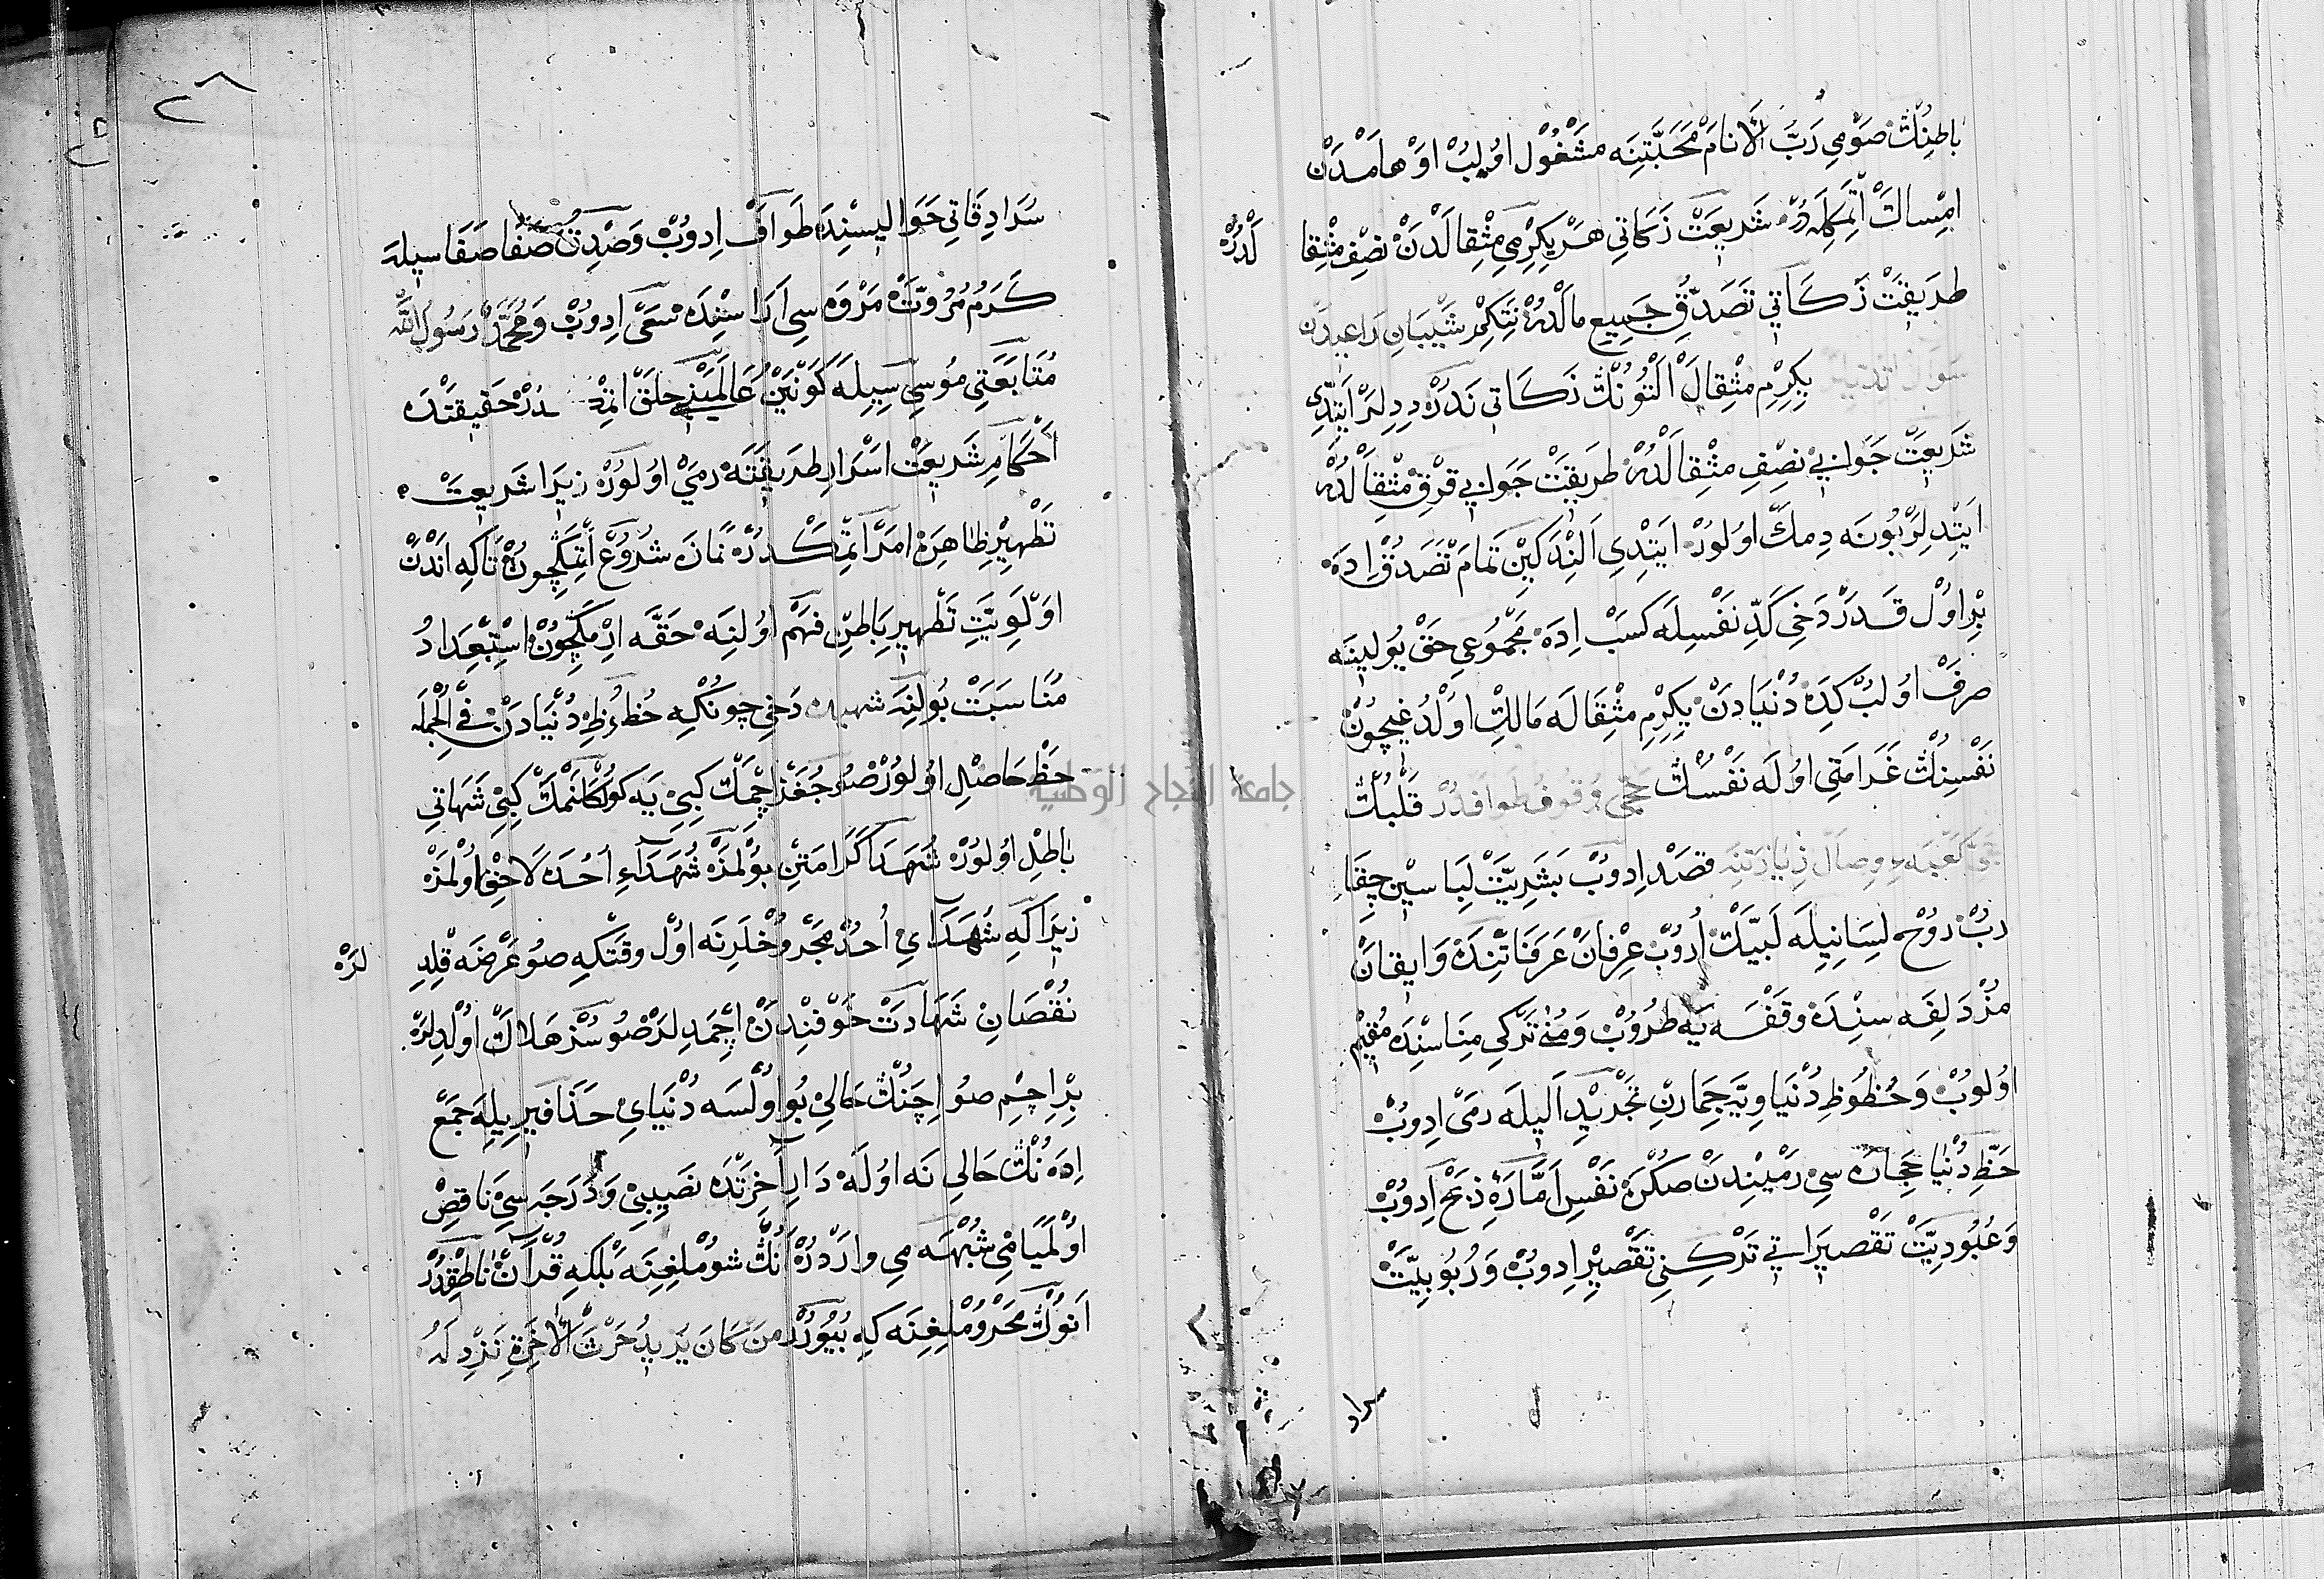 باطِنُڭ صَوْمِی رَبُّ الْاَنامْ مَحَبَّتِنَه مَشْغُوْل اوُلُبْ اوْهامْدَنْ
اِمْساكْ اَتْمِكْلَه دُرْ شَرِیعَتْ زَكَاتِی هَرْ یِكِرْمِی مِثْقالْدَنْ نِصْفِ مِثْقا لْدُرْ
طَرِیقَتْ زَكَاتِی تَصَدُّقِ جَمِیعِ مالْدُرْ نِتَكِمْ شَیْبَانِ رَاعِیدَنْ
سؤال اتدیلر یِكِرْمِ مِثْقَالْ اَلْتُونُڭْ زَكَاتِی نَدُرْ دِدِلَرْ اَیتْدِی
شَرِیعَتْ جَوابِی نِصْفِ مِثْقالْدُرْ طَرِیقَتْ جَوابِی قِرْقْ مِثْقالْدُرْ
اَیتْدِلَرْ بُونَه دِمَكْ اوُلُورْ اَیتْدِی اَلِنْدَكِینْ تَمامْ تَصَدُّقْ اِدَه
بِرْ اوُلْ قَدَرْ دَخِی كَدِّ نَفْسِلَه كَسْبْ اِدَه مَجْمُوعِی حَقْ یُولِینَه
صَرْفْ اوُلُبْ كِدَه دُنْیَادَنْ یِكِرْمِ مِثْقَالَه مَالِكْ اوُلْدُغِیچُونْ
نَفْسِنُڭْ غَرَامَتِی اوُلَه نَفْسُڭْ حَجِّی وُقوفُ طَوافدُرْ قَلْبُڭْ
كَعْبَهءِ وِصَال زِیَارَتِنَه قَصْد اِدوُبْ بَشَرِیَّتْ لِباسِین چِقَا
رُبْ رُوْح لِسَانِیلَه لَبَّیْكْ اُرُوبْ عِرْفانْ عَرَفَاتِنْدَه وَایقانْ
مُزْدَلِفَه سِنْدَه وَقْفَه یَه طُرُوبْ وَمُنٰی تَرْكِی مِنَاسِنْدَه مُقِیمْ
اوُلوُبْ وَحُظُوظِ دُنْیَاوِیَّه جِمَارِنْ تَجْرِیدِ اَلِیلَه رَمْی اِدوُبْ
حَظِّ دُنْیا حِجَارَه سِی رَمْیِندِنْ صُكْرَه نَفْسِ اَمَّارَهءِ ذِبْحْ اِدوُبْ
وَعُبُودِیَّتْ تَقْصِیرَاتِی تَرْكِنِی تَقْصِیرْ اِدوُبْ وَرُبُوبِیَّتْ
سراد
٢٨
سُرَادِقَاتِی حَوَالِیسْنِدَه طَوافْ اِدوُبْ وَصِدْقِ صَفَا صَفَاسِیلَه
كَرَمُ مُرُوَّتْ مَرْوَه سِی اَرَاسِنْدَه سَعْی اِدوُبْ وَمُحَمَّدْ رَسُولُ اللّٰه
مُتَابَعَتِی مُوسِی سِیلَه كَوْنَیْنُ عَالَمَیْنِی حَلَقْ اتْمَـ ـدُرْ حَقِیقَتْدَه
اَحْكَامِ شَرِیعَتْ اَسْرَارِ طَرِیقَتَه رَمْیْ اوُلوُرْ زِیرَا شَرِیعَتْ
تَطْهِیرِ ظاهِرَه اَمْر اتْمِكْدُرْ نَمَازَه شُرُوعْ اتْمِكِچُونْ تَاكِه اَنْدَنْ
اوْلَوِیَّتِ تَطْهِیرِ بَاطِنْ فَهْم اوُلِنَه حَقَّه اِرْمَكِچُونْ اِسْتِعْدَادُ
مُنَاسَبَتْ بُولِنَه دَخِی چونْكِه حُظُوظِ دُنْیَادَنْ فِی الْجُمْلَه
حَظْ حَاصِلْ اوُلوُرْ صُو جُغَزْ اِچْمَكْ كِبِی یَه كُولْكَلَنْمَكْ كِبِی شَهَاتِی
بَاطِلْ اوُلوُرْ شُهَدَا كَرَامَتِنْ بوُلْمَزْ شُهَدَاءِ اُحُدَه لَاحِقْ اوُلْمَزْ
زِیرَاكِه شُهَدَاءِ اُحُدْ مَجْرُوحْلَرِنَه اوُلْ وَقْتَكِه صُو عَرْضَه قِلِدِ لَرْ
نُقْصَانِ شَهَادَتْ خَوْفِنْدَنْ اِچْمَدِلَرْ صُوسُزْ هَلَاكْ اوُلْدِلَرْ
بِرْ اِچِمْ صُو اِچَنُڭْ حَالِی بُو اوُلْسَه دُنْیَایِ حَذَافِیرِیلَه جَمْعْ
اِدَه نُڭْ حَالِی نَه اوُلَه دَارِ آخِرَتْدَه نَصِیبِی وَدَرَجَه سِی نَاقِصْ
اوُلْمَیَامِی شُبْهَه مِی وارْدُرْ اَنُڭْ شُومْلِغِنَه بَلْكِه قُرْآنْ نَاطِقْدُرْ
اَنُوڭْ مَحْرُومْلِغِنَه كِه بُیُورُرْ مَنْ كَانَ یُرِیدُ حَرْثَ الْاٰخِرَةِ نَزِدْ لَهُ
جامعة النجاح الوطنية